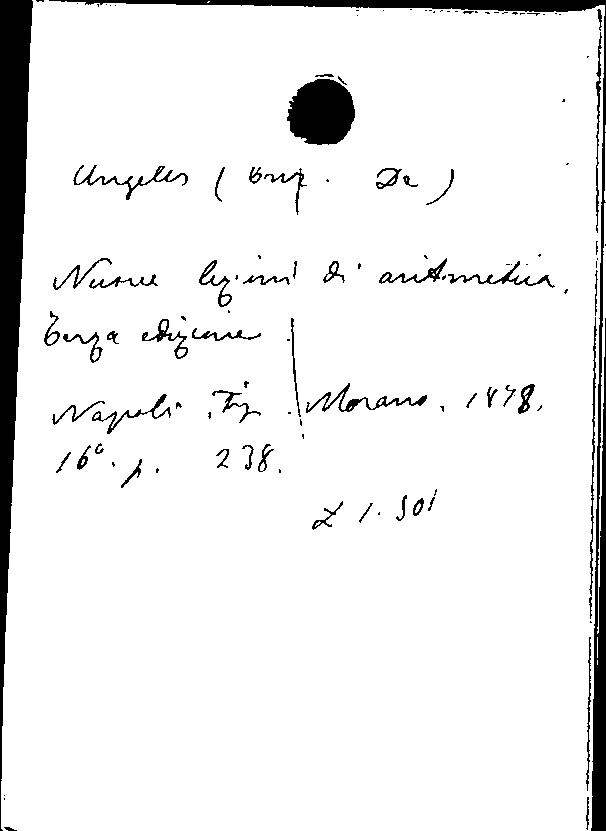 Angelis ( Gius. De )
Nuove lezioni di aritmetica.
Terza edizione.
Napoli, Tip. Morano, 1878.
16° p. 238.
L 1.50